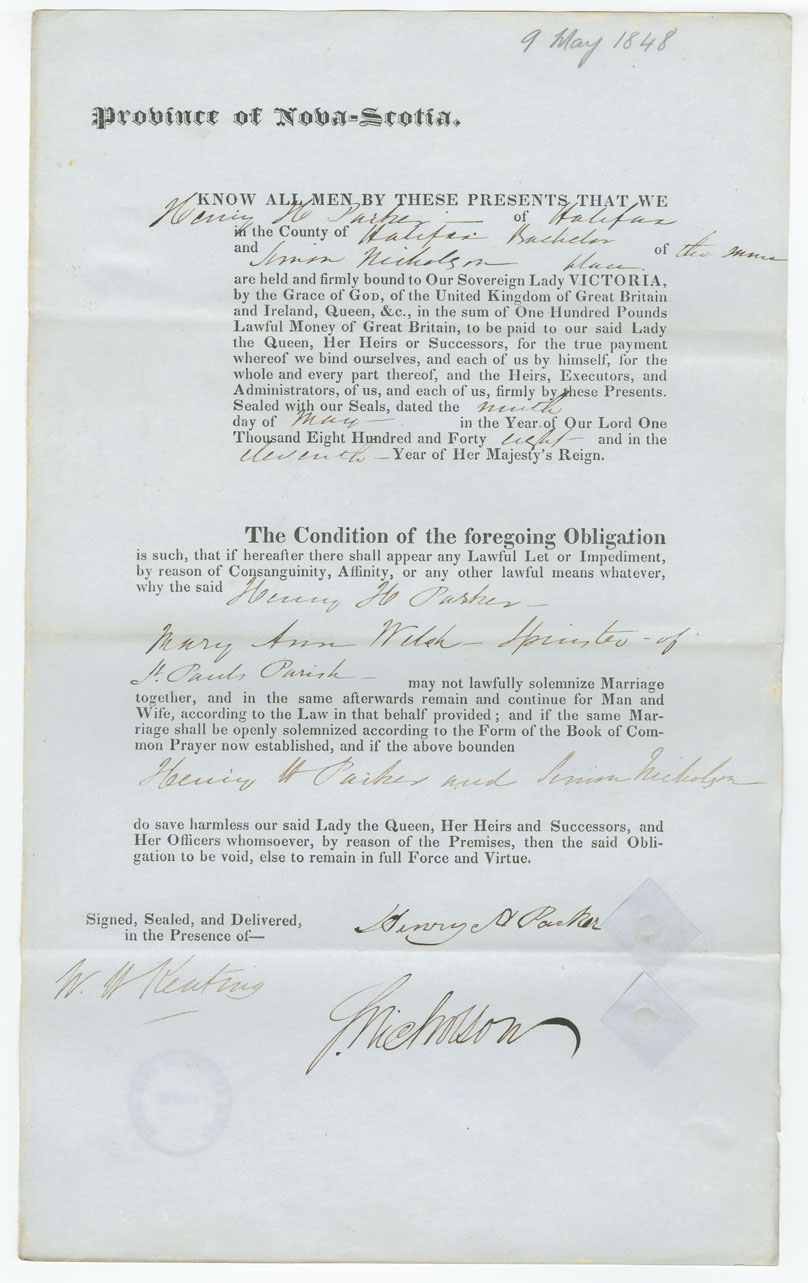 9 May 1848
Province of Nova-Scotia.
KNOW ALL MEN BY THESE PRESENTS THAT WE
Henry H Parker — of Halifax
in the County of Halifax Bachelor
and Simon Nicholson of the same
place.
are held and firmly bound to Our Sovereign Lady VICTORIA,
by the Grace of GOD, of the United Kingdom of Great Britain
and Ireland, Queen, &c., in the sum of One Hundred Pounds
Lawful Money of Great Britain, to be paid to our said Lady
the Queen, Her Heirs or Successors, for the true payment
whereof we bind ourselves, and each of us by himself, for the
whole and every part thereof, and the Heirs, Executors, and
Administrators, of us, and each of us, firmly by these Presents.
Sealed with our Seals, dated the ninth
day of May — in the Year of Our Lord One
Thousand Eight Hundred and Forty eight — and in the
eleventh — Year of Her Majesty's Reign.
The Condition of the foregoing Obligation
is such, that if hereafter there shall appear any Lawful Let or Impediment,
by reason of Consanguinity, Affinity, or any other lawful means whatever,
why the said Henry H Parker —
Mary Ann Welsh — Spinster — of
St. Pauls Parish — may not lawfully solemnize Marriage
together, and in the same afterwards remain and continue for Man and
Wife, according to the Law in that behalf provided; and if the same Mar-
riage shall be openly solemnized according to the Form of the Book of Com-
mon Prayer now established, and if the above bounden
Henry H Parker and Simon Nicholson
do save harmless our said Lady the Queen, Her Heirs and Successors, and
Her Officers whomsoever, by reason of the Premises, then the said Obli-
gation to be void, else to remain in full Force and Virtue.
Signed, Sealed, and Delivered,
in the Presence of—
Henry H Parker
W. H Keating
S. Nicholson